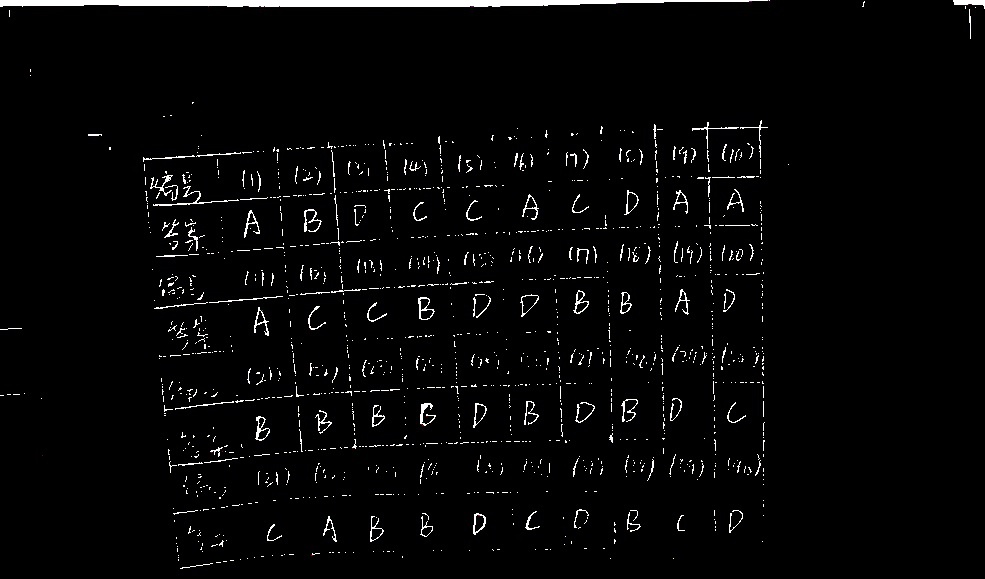 编号 (1) (2) (3) (4) (5) (6) (7) (8) (9) (10)
答案 A B D C C A C D A A
编号 (11) (12) (13) (14) (15) (16) (17) (18) (19) (20)
答案 A C C B D D B B A D
(21) (22) (23) (24) (25) (27) (28) (29) (30)
答案 B B B B D B D B D C
编号 (31) (35) (36) (37) (38) (39) (40)
答案 C A B B D C D B C D